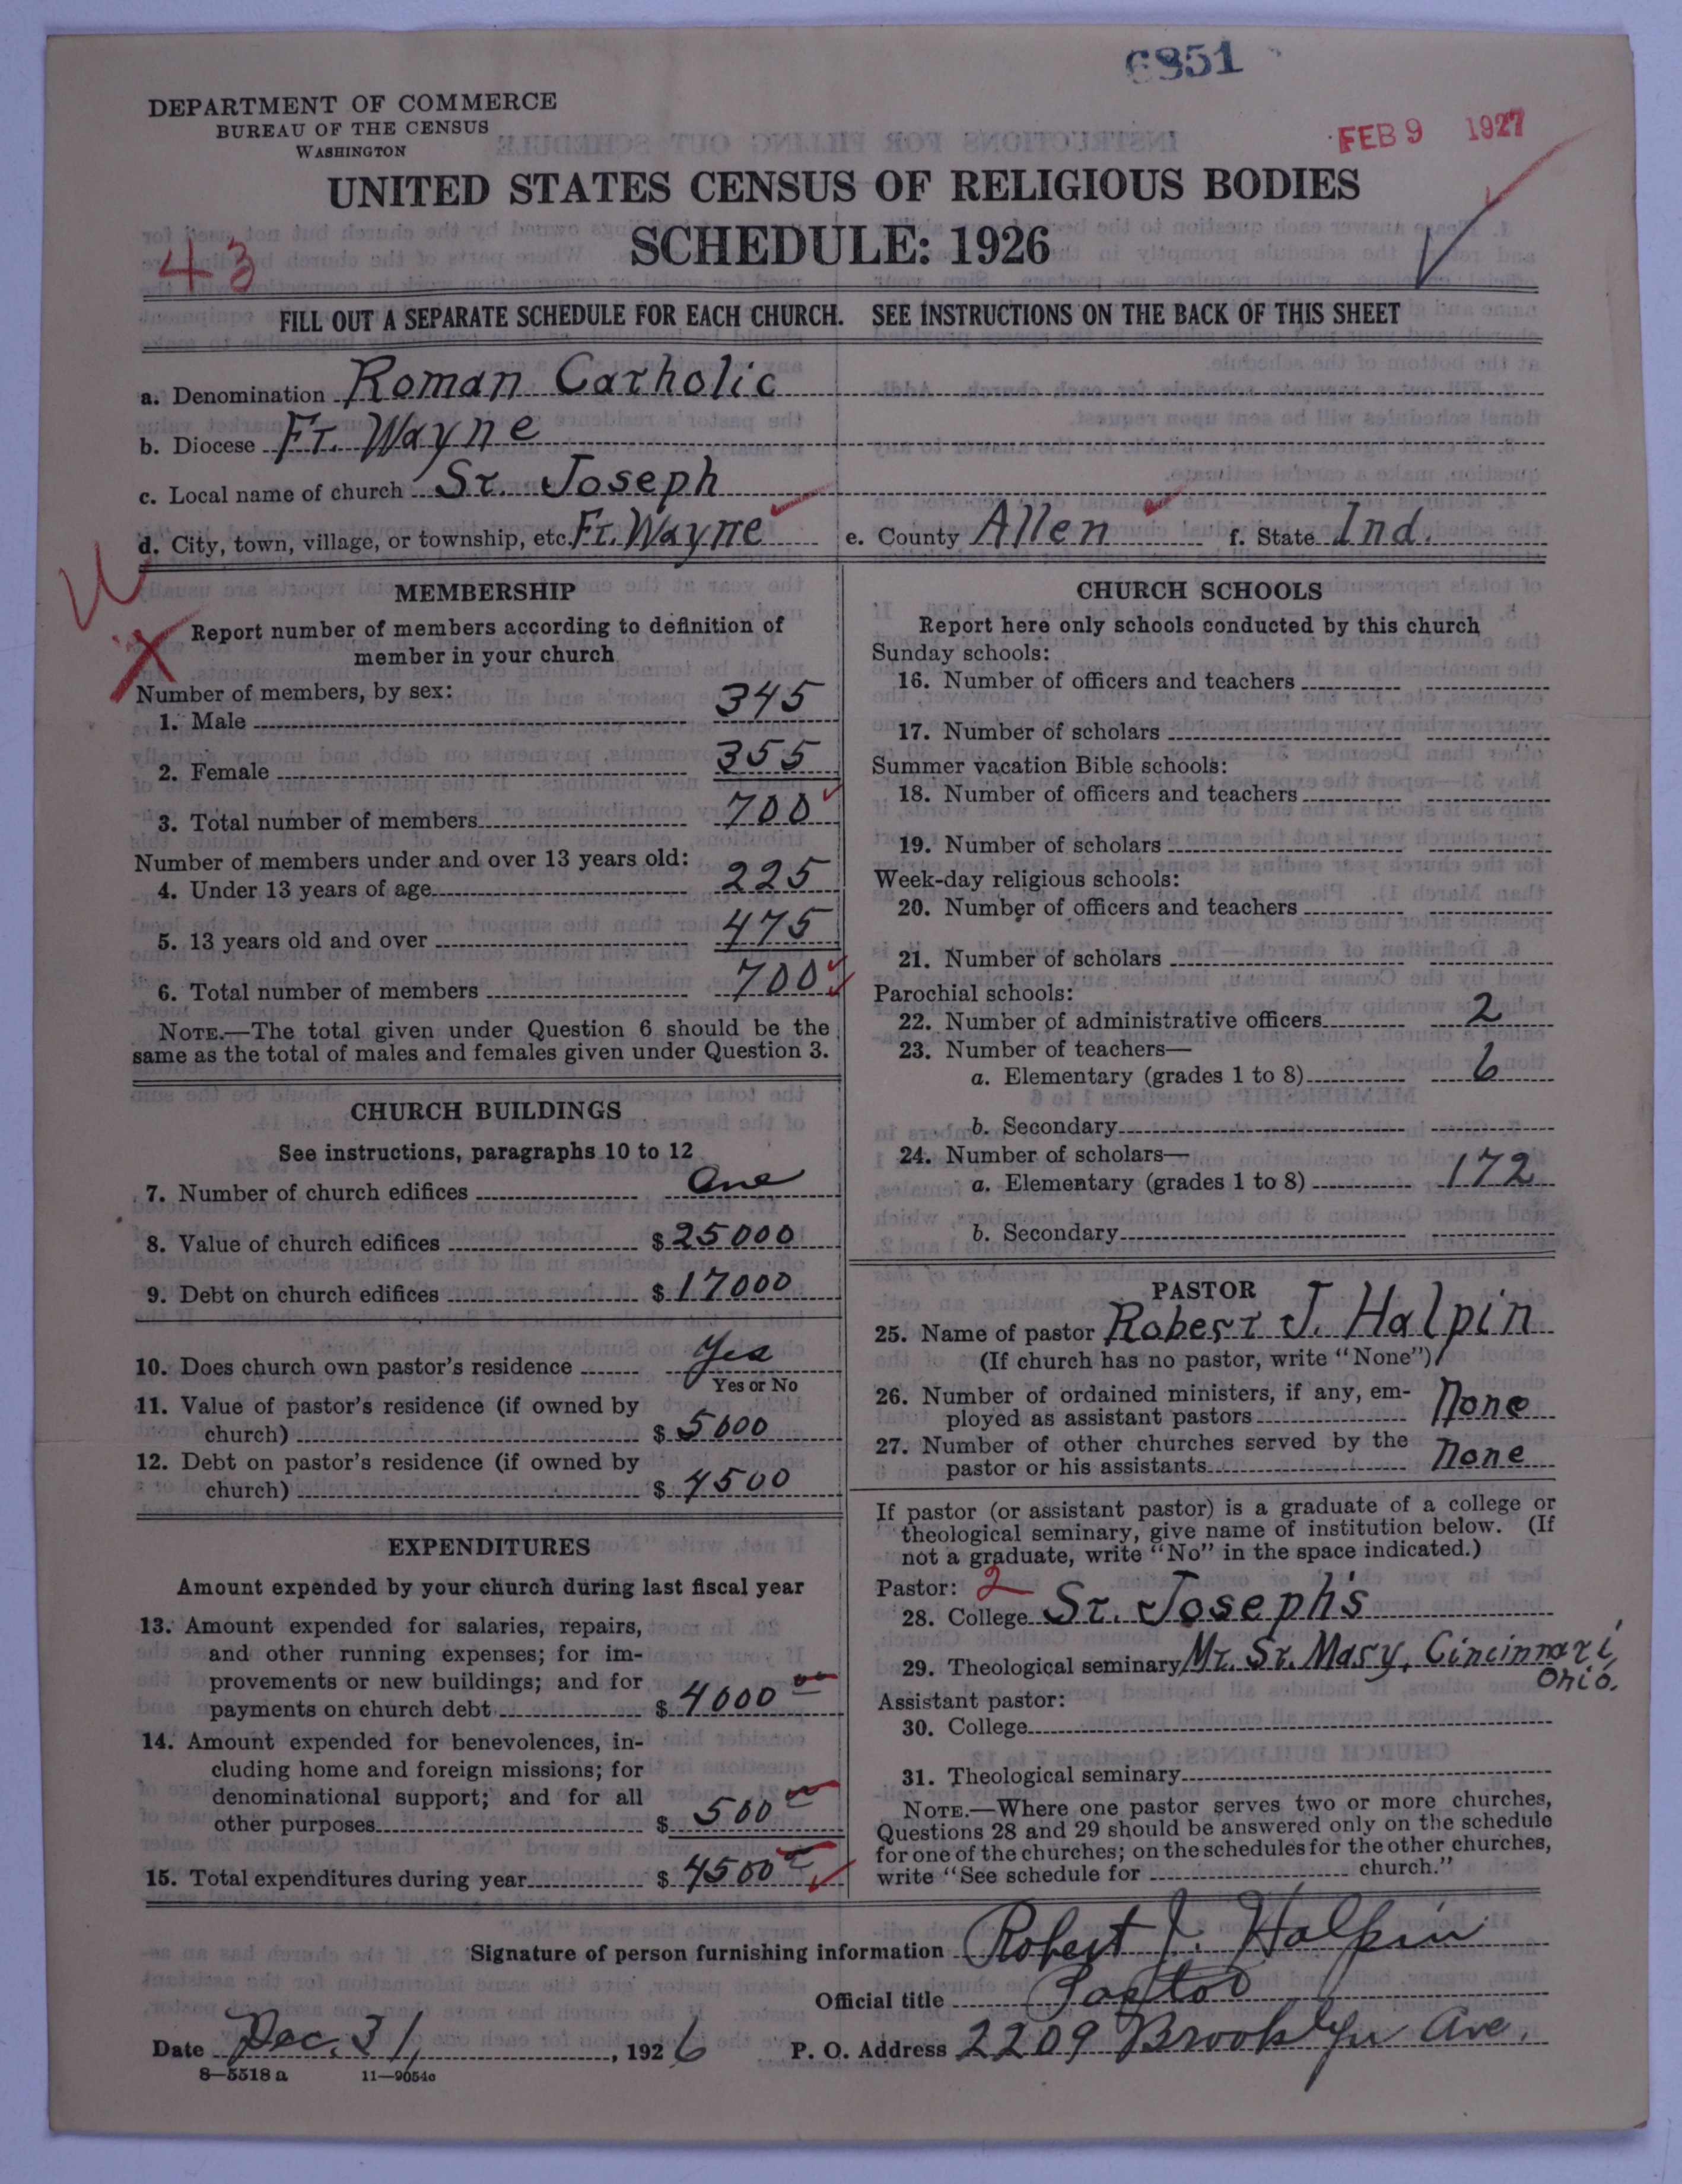 6851
DEPARTMENT OF COMMERCE
BUREAU OF THE CENSUS
WASHINGTON
FEB 9 1927
UNITED STATES CENSUS OF RELIGIOUS BODIES
SCHEDULE: 1926
43
FILL OUT A SEPARATE SCHEDULE FOR EACH CHURCH. SEE INSTRUCTIONS ON THE BACK OF THIS SHEET
a. Denomination Roman Catholic
b. Diocese Ft. Wayne
c. Local name of church St. Joseph
d. City, town, village, or township, etc. Ft. Wayne e. County Allen f. State Ind.
MEMBERSHIP
Report number of members according to definition of
member in your church
Number of members, by sex:
1. Male 345
2. Female 355
3. Total number of members 700
Number of members under and over 13 years old:
4. Under 13 years of age 225
5. 13 years old and over 475
6. Total number of members 700
NOTE.—The total given under Question 6 should be the
same as the total of males and females given under Question 3.
CHURCH BUILDINGS
See instructions, paragraphs 10 to 12
7. Number of church edifices One
8. Value of church edifices $ 25000
9. Debt on church edifices $ 17000
10. Does church own pastor's residence Yes
Yes or No
11. Value of pastor's residence (if owned by
church) $ 5000
12. Debt on pastor's residence (if owned by
church) $ 4500
EXPENDITURES
Amount expended by your church during last fiscal year
13. Amount expended for salaries, repairs,
and other running expenses; for im-
provements or new buildings; and for
payments on church debt $ 4000 00
14. Amount expended for benevolences, in-
cluding home and foreign missions; for
denominational support; and for all
other purposes $ 500
15. Total expenditures during year $ 4500
CHURCH SCHOOLS
Report here only schools conducted by this church
Sunday schools:
16. Number of officers and teachers
17. Number of scholars
Summer vacation Bible schools:
18. Number of officers and teachers
19. Number of scholars
Week-day religious schools:
20. Number of officers and teachers
21. Number of scholars
Parochial schools:
22. Number of administrative officers 2
23. Number of teachers—
a. Elementary (grades 1 to 8) 6
b. Secondary
24. Number of scholars—
a. Elementary (grades 1 to 8) 172
b. Secondary
PASTOR
25. Name of pastor Robert J. Halpin
(If church has no pastor, write "None")
26. Number of ordained ministers, if any, em-
ployed as assistant pastors None
27. Number of other churches served by the
pastor or his assistants None
If pastor (or assistant pastor) is a graduate of a college or
theological seminary, give name of institution below. (If
not a graduate, write "No" in the space indicated.)
Pastor: 2
28. College St. Joseph's
29. Theological seminary Mt. St. Mary, Cincinnati,
Ohio.
Assistant pastor:
30. College
31. Theological seminary
NOTE.—Where one pastor serves two or more churches,
Questions 28 and 29 should be answered only on the schedule
for one of the churches; on the schedules for the other churches,
write "See schedule for church."
Signature of person furnishing information Robert J. Halpin
Official title Pastor
Date Dec. 31, 1926 P. O. Address 2209 Brooklyn Ave.
8—5518 a 11—9054c